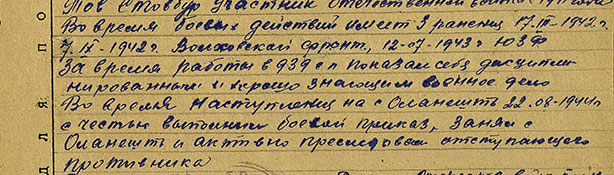 Тов Стовбур участник Отечественной войны
Во время боевых действий имеет 3 ранения 17.III-1942г.
7.IX-1942г. Волховский фронт, 12-07-1943г ЮЗФ
За время работы в 939 сп показал себя дисципли-
нированным и хорошо знающим военное дело
Во время наступления на с Оланешть 22.08-1944г
с честью выполнил боевой приказ, занял с
Оланешть и активно преследовал отступающего
противника
П
О
Д
Л
Я